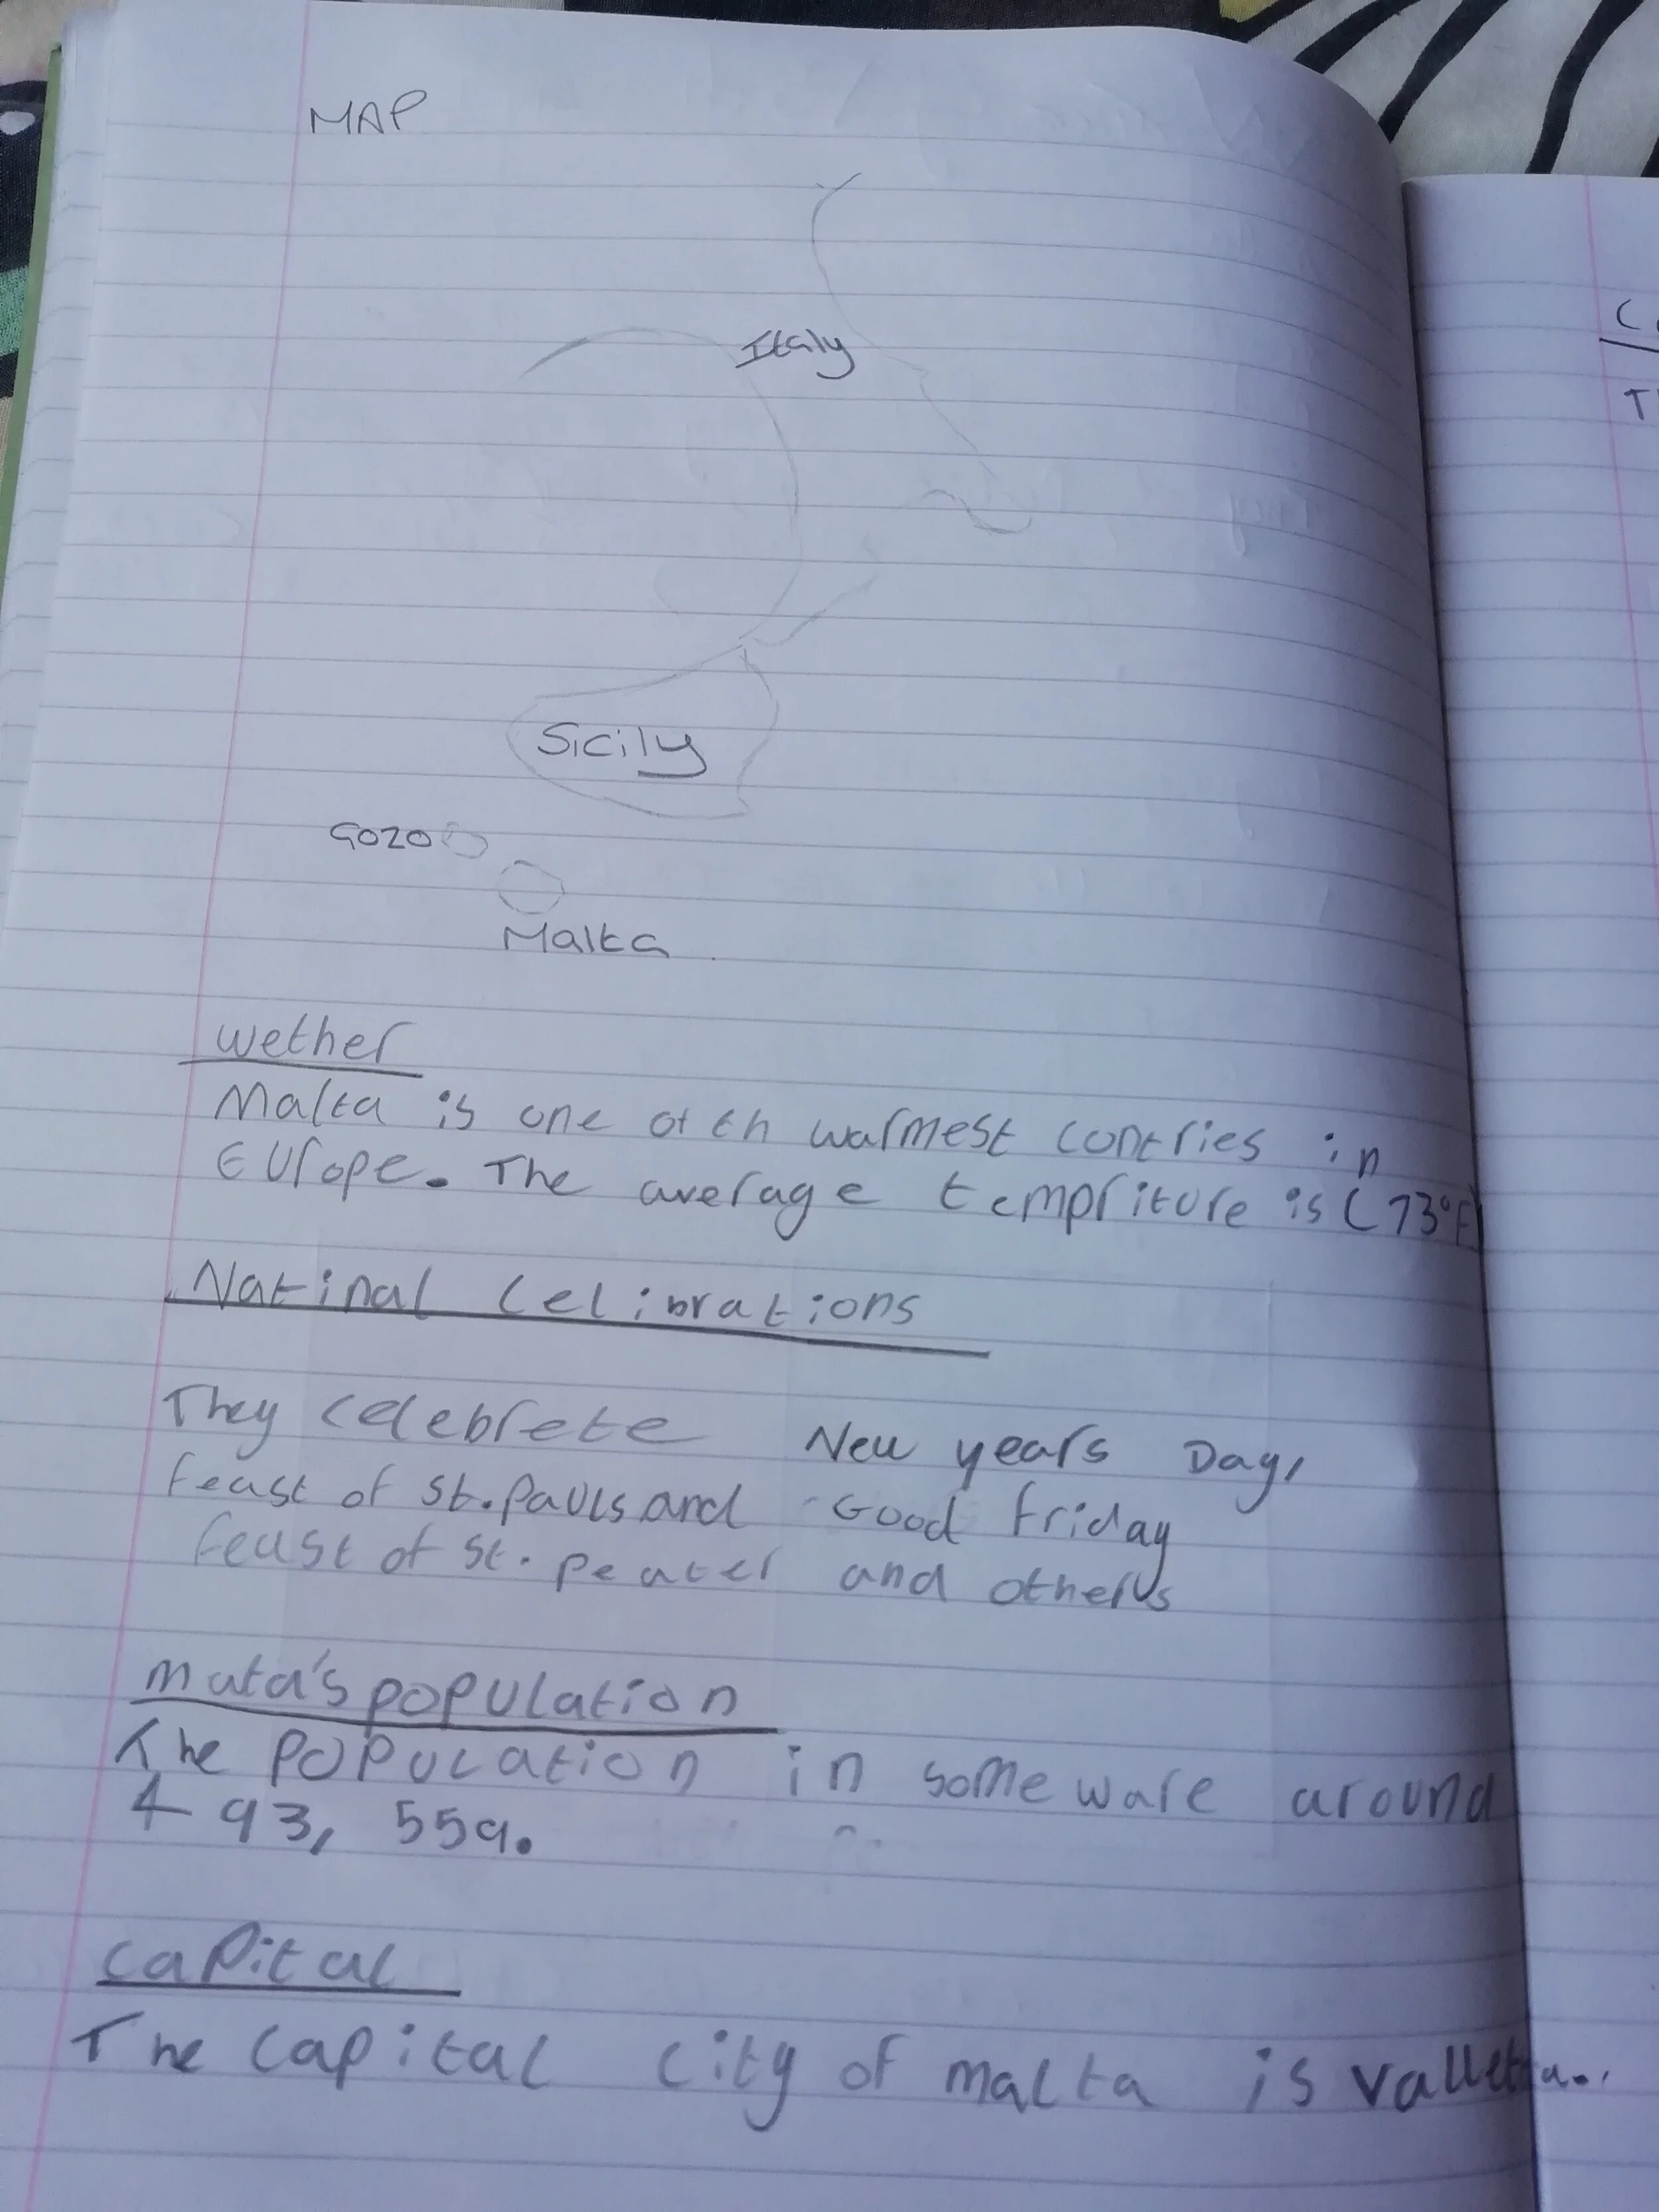 MAP
Italy
Sicily
Gozo
Malta
wether
Malta is one of th warmest contries in
Europe. The average tempriture is (73°F)
Natinal Celibrations
They celebrete New years Day,
feast of St. Pauls and Good friday
feast of St. peater and others
mata's population
The population in someware around
493, 559.
capital
The capital city of malta is valletta.
C
T